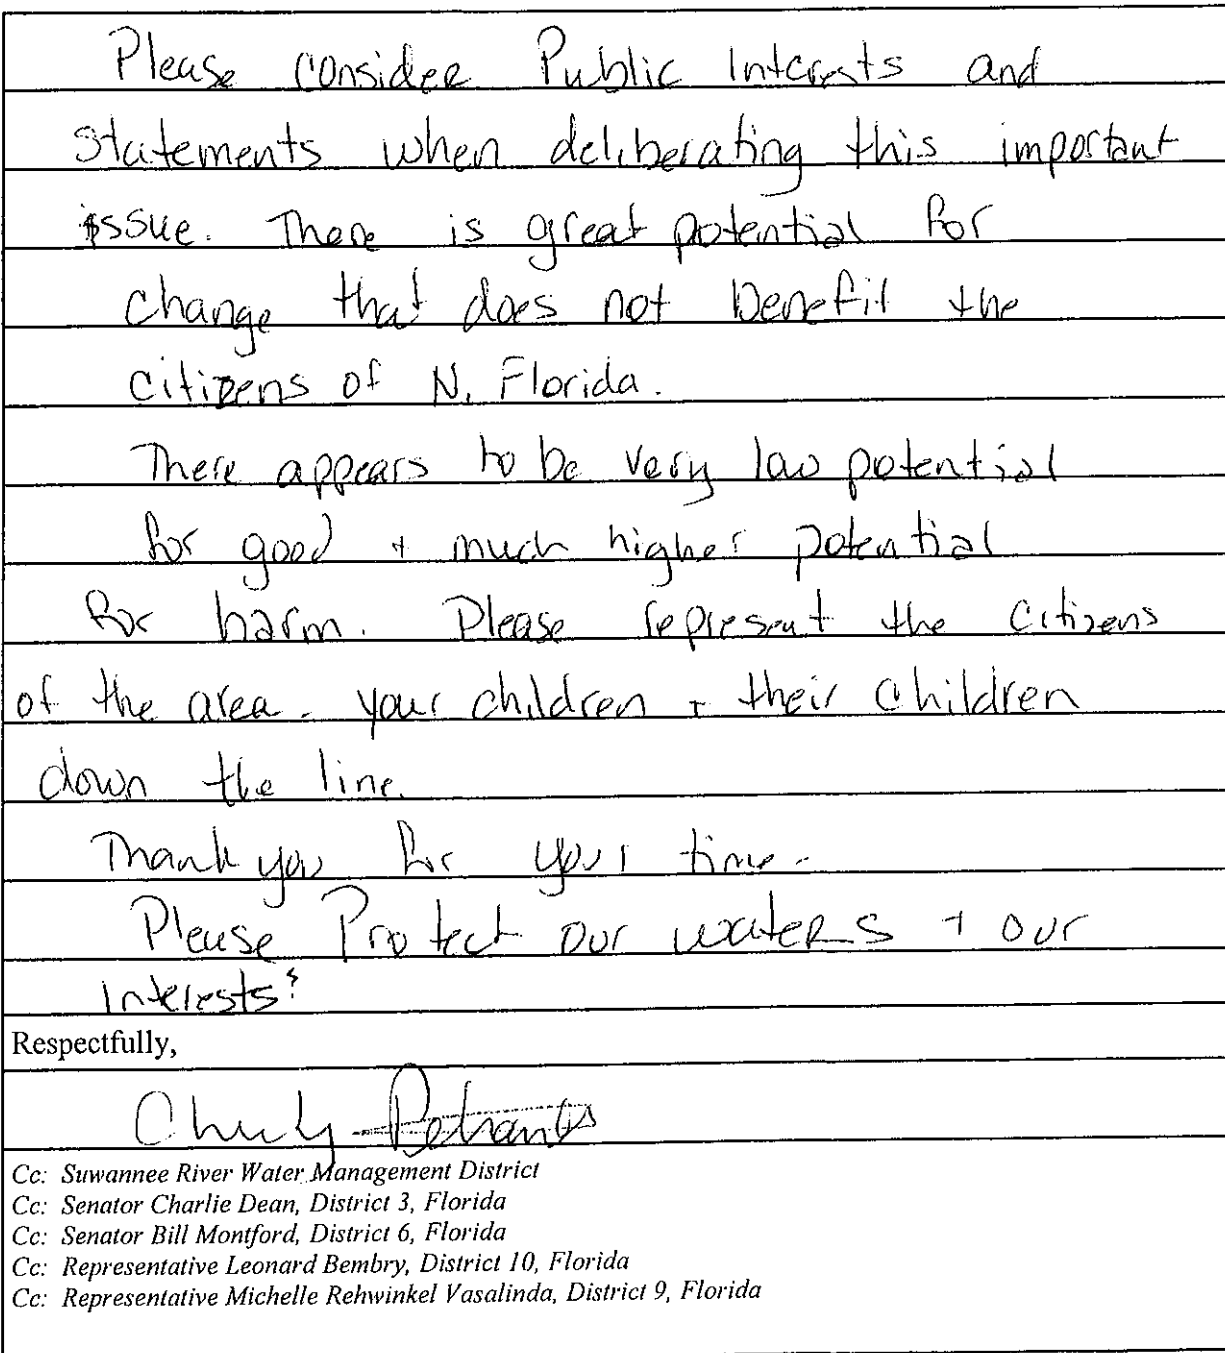 Please consider Public Interests and
statements when deliberating this important
issue. There is great potential for
change that does not benefit the
citizens of N. Florida.
There appears to be very low potential
for good + much higher potential
for harm. Please represent the citizens
of the area - your children + their children
down the line.
Thank you for your time.
Please Protect our waters + our
interests!
Respectfully,
Cc: Suwannee River Water Management District
Cc: Senator Charlie Dean, District 3, Florida
Cc: Senator Bill Montford, District 6, Florida
Cc: Representative Leonard Bembry, District 10, Florida
Cc: Representative Michelle Rehwinkel Vasalinda, District 9, Florida